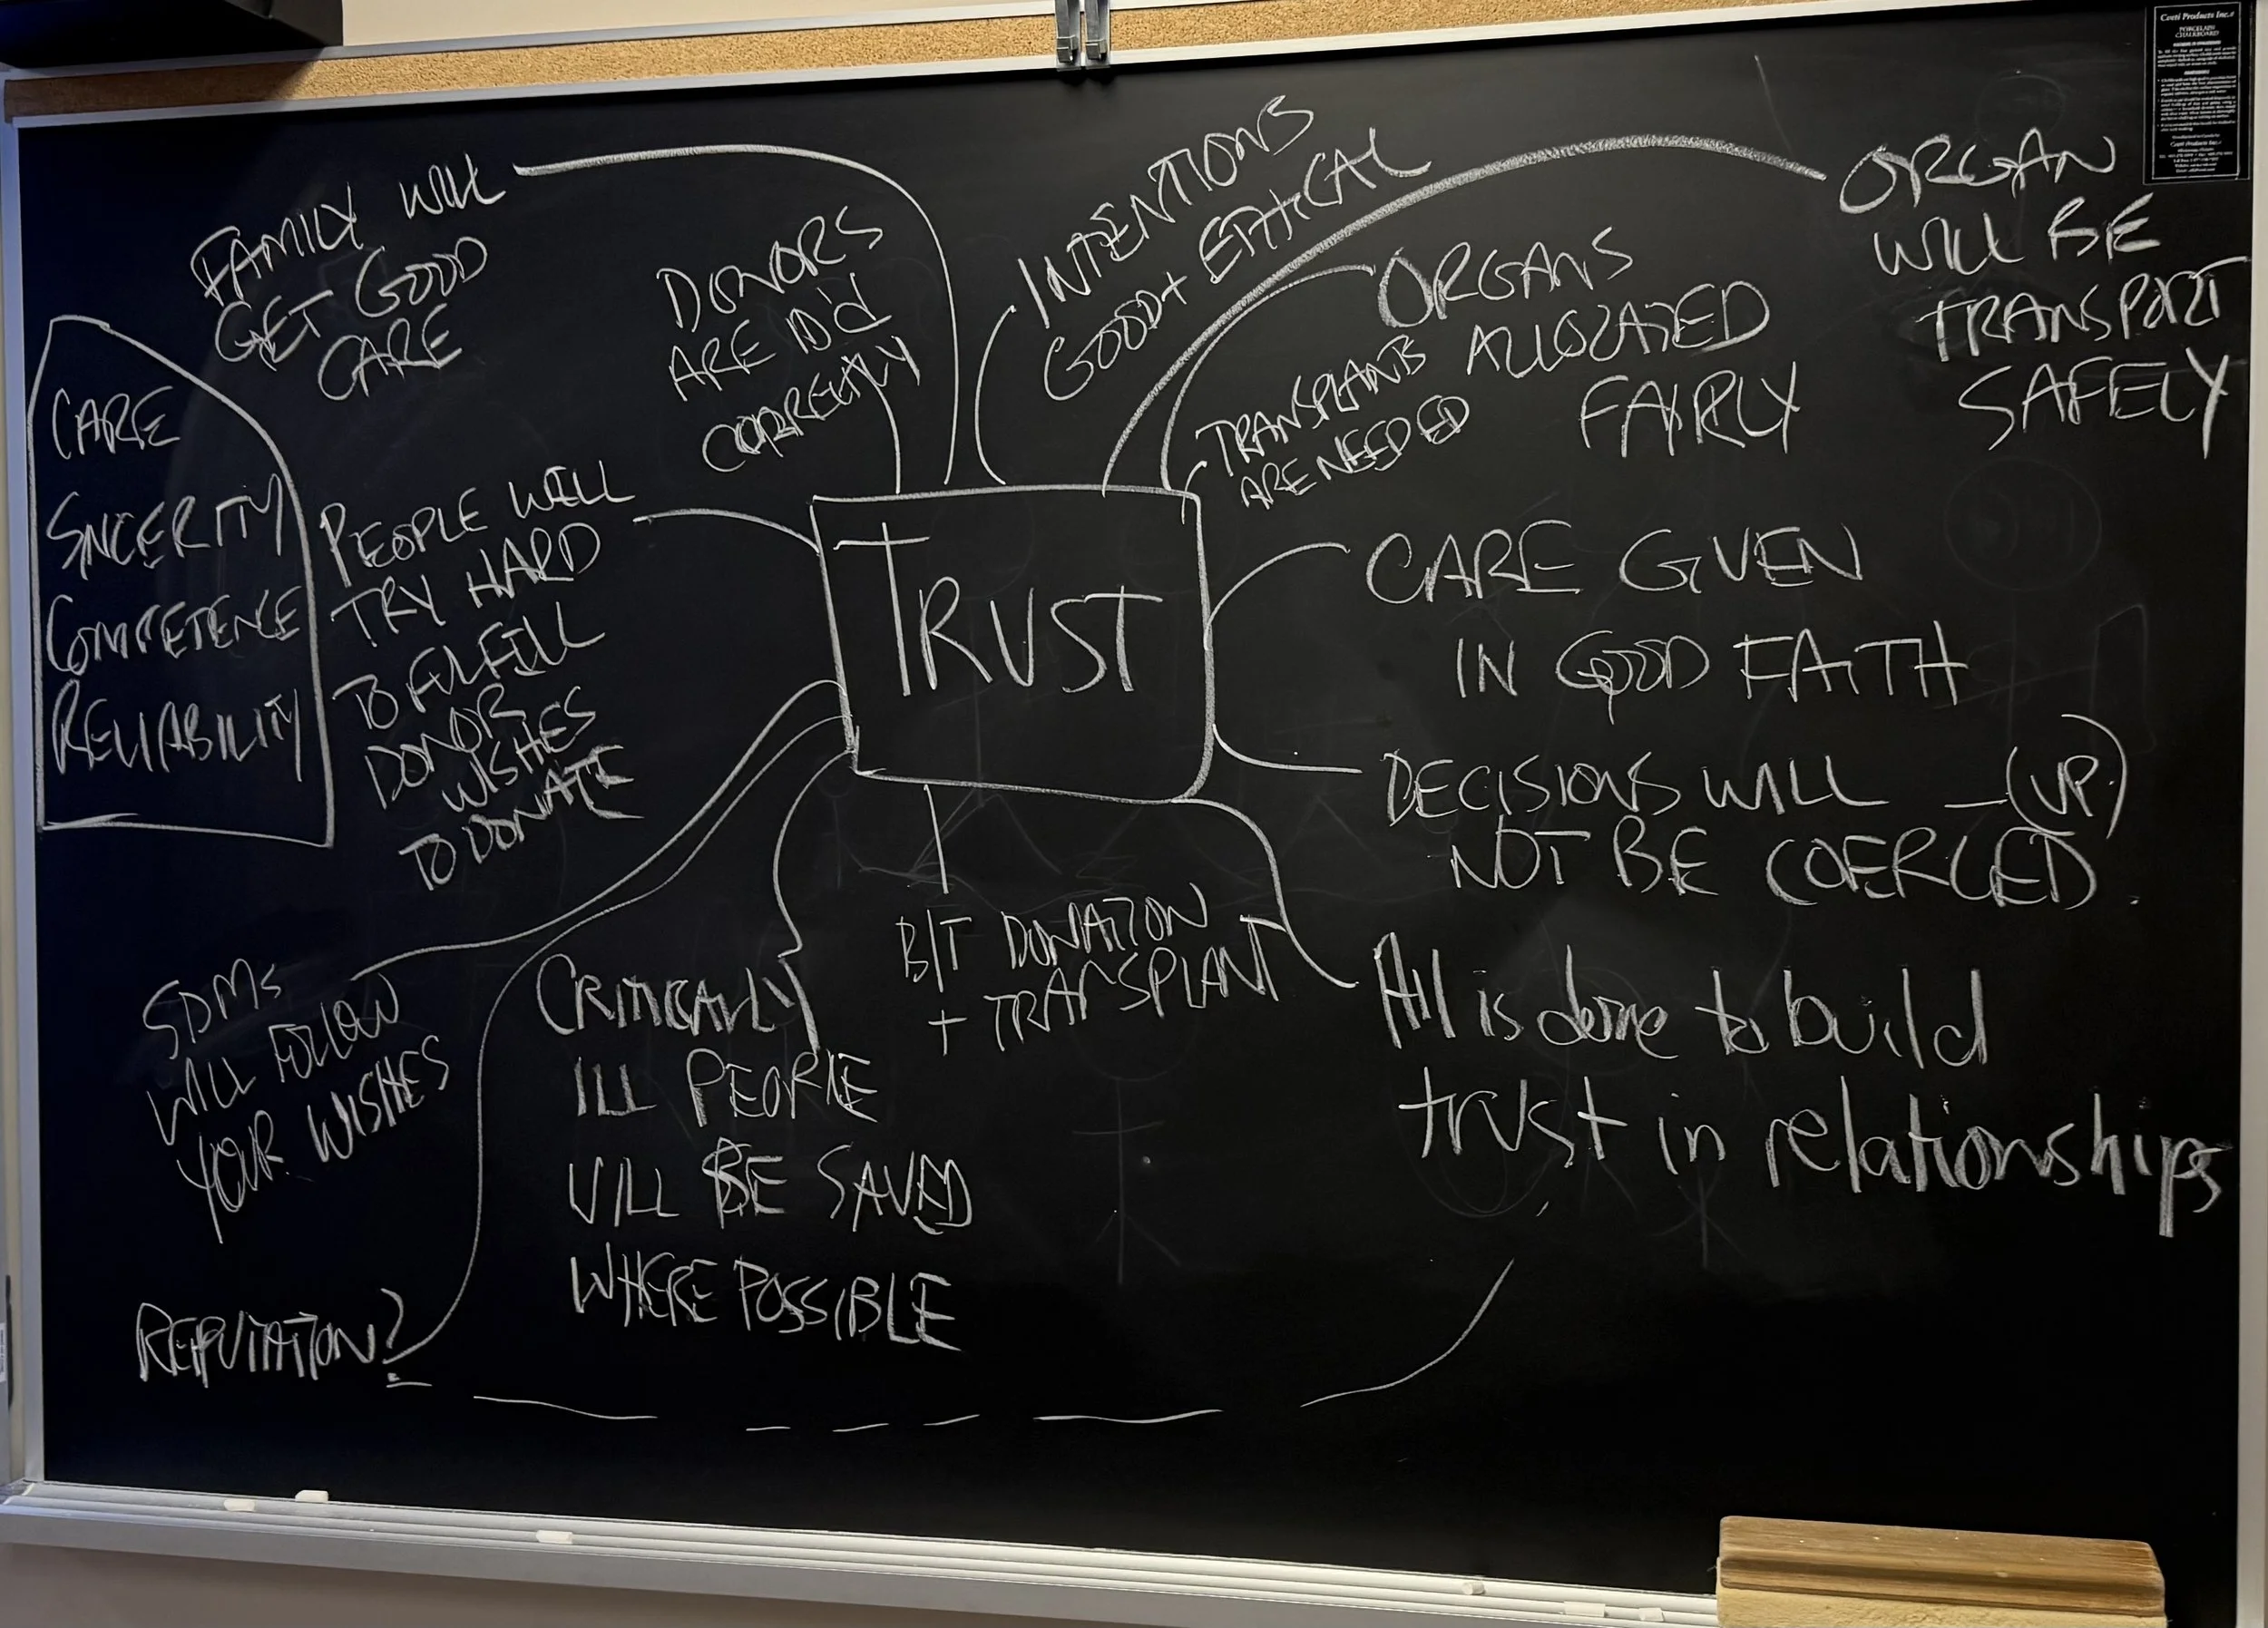 FAMILY WILL
GET GOOD
CARE
DONORS
ARE ID'd
CORRECTLY
INTENTIONS
GOOD + ETHICAL
ORGANS
ALLOCATED
FAIRLY
ORGAN
WILL BE
TRANSPORT
SAFELY
TRANSPLANTS
ARE NEEDED
CARE
SINCERITY
COMPETENCE
RELIABILITY
PEOPLE WILL
TRY HARD
TO FULFILL
DONOR
WISHES
TO DONATE
TRUST
CARE GIVEN
IN GOOD FAITH
DECISIONS WILL — (UP)
NOT BE COERCED.
SDMs
WILL FOLLOW
YOUR WISHES
CRITICALLY
ILL PEOPLE
WILL BE SAVED
WHERE POSSIBLE
B/T DONATION
+ TRANSPLANT
All is done to build
trust in relationships
REPUTATION?
Ceeti Products Inc.
PORCELAIN
CHALKBOARD